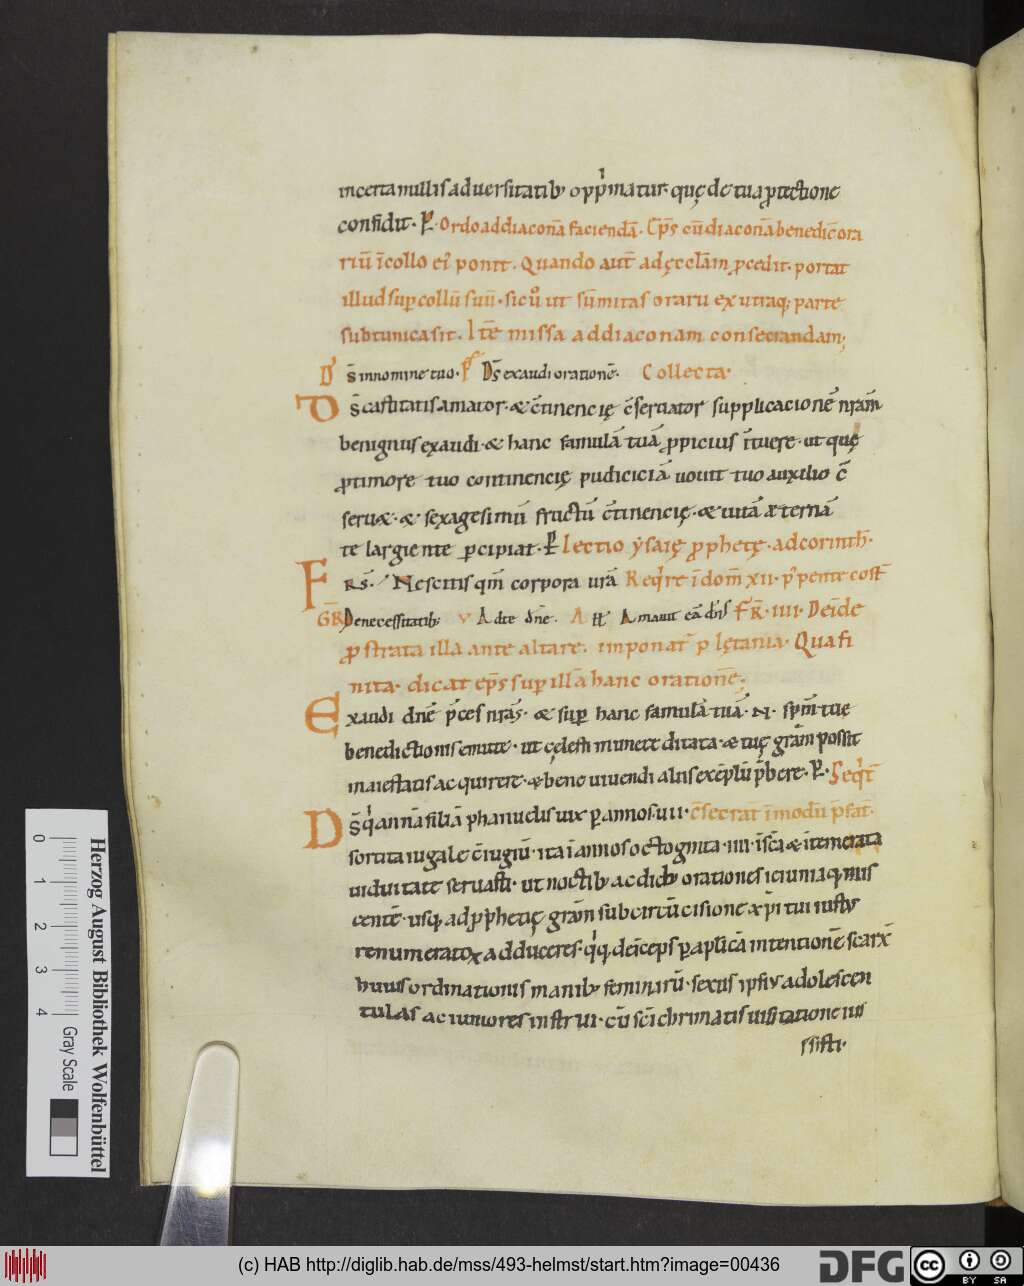 incerta nullis aduersitatib; opp̄matur. quę de tua ꝓtectione
confidit. ꝑ. Ordo ad diaconā faciendā. Ep̄s cū diaconā benedic̄ ora
riū ī collo ei ponit. Quando aut̄ ad ęcclām ꝓcedit. portat
illud suꝑ collū suū. sic uͦ ut sūmitas orarii ex utraq; parte
sub tunica sit. Itē missa ad diaconam consecrandam;
D̄s in nomine tuo. P̄ D̄s exaudi orationē. Collecta.
D̄s castitatis amator. & c̄tinencię c̄seruator supplicacionē nrām
benignus exaudi. & hanc famulā tuā ꝓpicius ītuere. ut quę
ꝓ timore tuo continencię pudiciciā uouit tuo auxilio c̄
seruæ. & sexagesimū fructū c̄tinencię. & uitā æternā
te largiente ꝑcipiat. ꝑ Lectio ẏsaię ꝓphetę. ad corinth̄.
FRS̄. Nescitis qm̄ corpora urā Req̄re ī dom̄ xii. p̄ pentecost̄
GR̄ De necessitatib; v Ad te dn̄e. A ł̄ł Amauit eā dn̄s FR̄. IIII. Deīde
ꝓstrata illa ante altare. imponat̄ ꝓ lętania. Qua fi
nita. dicat ep̄s suꝑ illā hanc orationē;
Exaudi dn̄e p̄ces nrās. & suꝑ hanc famulā tuā. N. sp̄m tuę
benedictionis emitte. ut cęlesti munere ditata. & tuę grām possit
maiestatis acquirere. & bene uiuendi aliis exēplū p̄bere. ꝑ. Seq̄t̄
D̄s q̄ annā filiā phanuelis uix ꝑ annos. uii. c̄secrat̄ ī modū p̄fat̄.
sortita iugale c̄iugiū. ita ī annos octoginta. IIII. ī sc̄a & ītemerata
uiduitate seruasti. ut noctib; ac dieb; orationes ieiuniaq; mis
centē. usq; ad ꝓphetię grām sub circūcisione xp̄i tui iustus
renumerator adduceres. q̄q; deīceps ꝑ aplicā intentionē scarx̄
huius ordinationis manib; feminarū. sexus ipsius adolescen
tulas ac iuniores instrui. cū sc̄i chrimatis uisitatione iu
ssisti.
0 1 2 3 4
Herzog August Bibliothek Wolfenbüttel
Gray Scale
(c) HAB http://diglib.hab.de/mss/493-helmst/start.htm?image=00436
DFG
cc BY SA